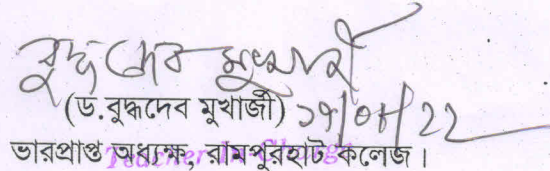 বুদ্ধদেব মুখার্জী
(ড.বুদ্ধদেব মুখার্জী)
ভারপ্রাপ্ত অধ্যক্ষে, রামপুরহাট কলেজ।
Teacher In Charge